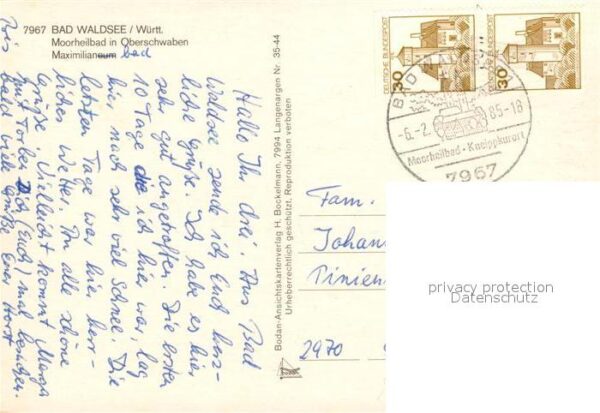 7967 BAD WALDSEE / Württ.
Moorheilbad in Oberschwaben
Maximilianeum bad
Hallo Ihr drei. Aus Bad
Waldsee sende ich Euch herz-
liche Grüße. Ich habe es hier
sehr gut angetroffen. Die ersten
10 Tage die ich hier war, lag
hier noch sehr viel Schnee. Die
letzten Tage war hier herr-
liches Wetter. Für alle schöne
Grüße. Vielleicht kommt
mit Torben Dich (Euch) mal besuchen.
Bis bald viele Grüße Euer Horst
Bodan-Ansichtskartenverlag H. Bockelmann, 7994 Langenargen Nr 35-44
Urheberrechtlich geschützt. Reproduktion verboten
DEUTSCHE BUNDESPOST
30
DEUTSCHE BUNDESPOST
30
BAD WALDSEE
-6.-2.85-18
Moorheilbad · Kneippkurort
7967
Fam.
Johann
Pinien
2970
privacy protection
Datenschutz